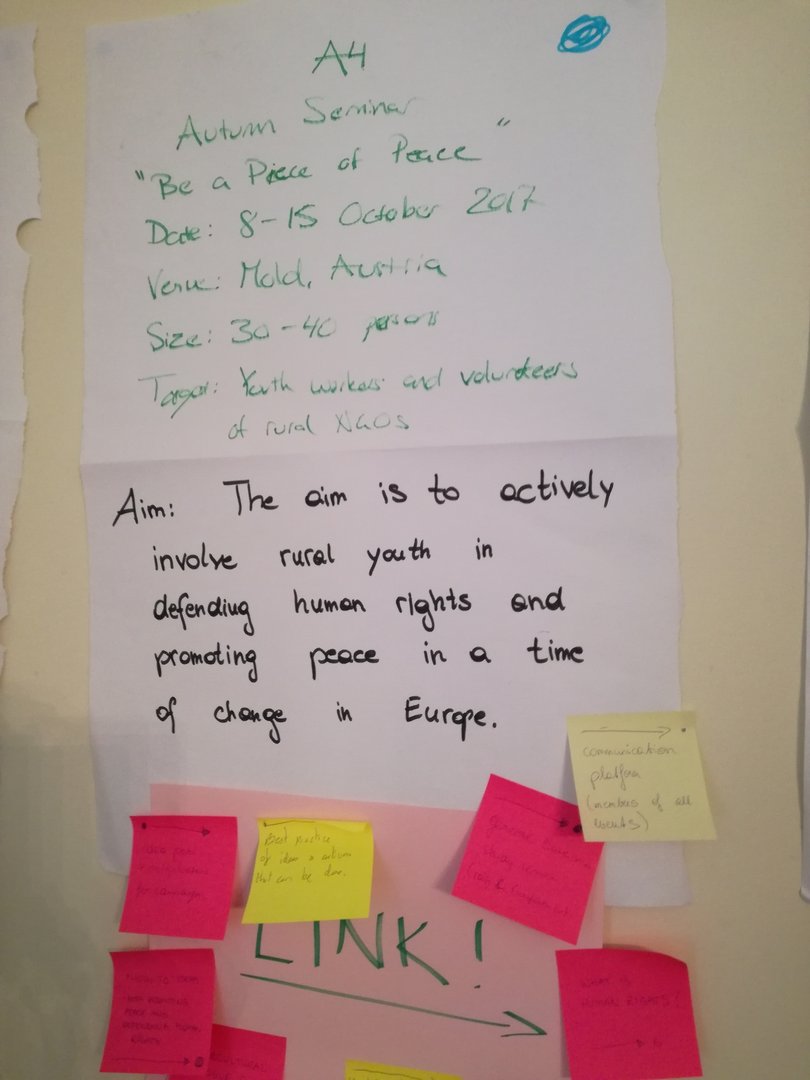 A4
Autumn Seminar
"Be a Piece of Peace"
Date: 8-15 October 2017
Venue: Mold, Austria
Size: 30-40 persons
Target: Youth workers and volunteers
of rural NGOs
Aim: The aim is to actively
involve rural youth in
defending human rights and
promoting peace in a time
of change in Europe.
communication
platform
(members of all
events)
Best practice
of ideas & actions
that can be done.
for campaign
LINK!
HOW TO
PEACE AND
RIGHTS
WHAT IS
HUMAN RIGHTS?